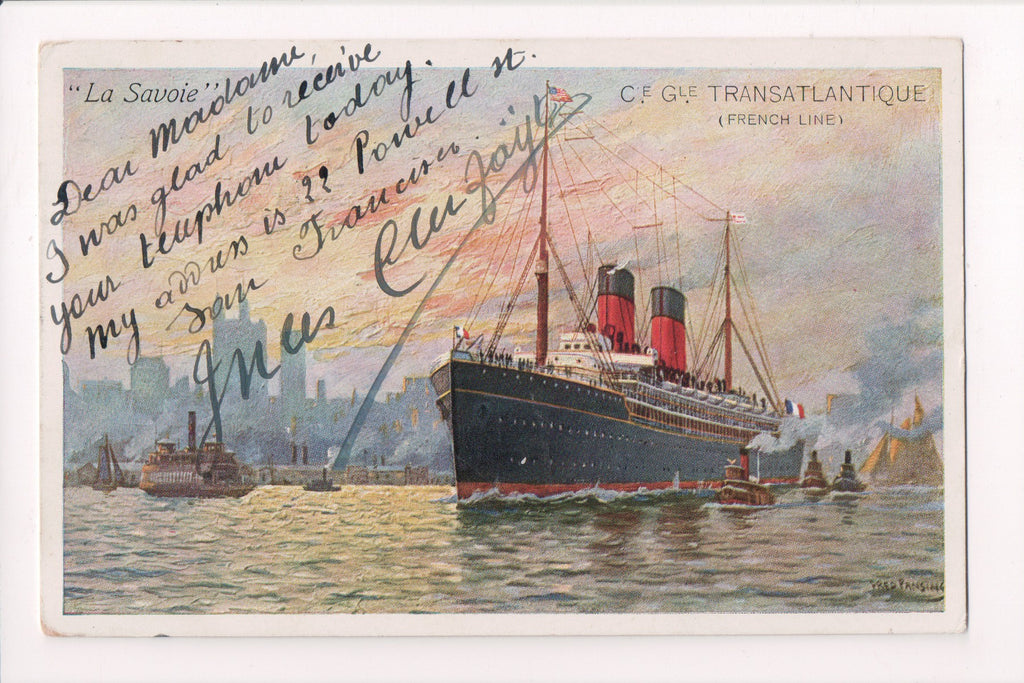 "La Savoie"
CIE GLE TRANSATLANTIQUE
(FRENCH LINE)
Dear Madame,
I was glad to receive
your telephone today.
my address is 22 Powell st.
San Francisco.
FRED PANSING